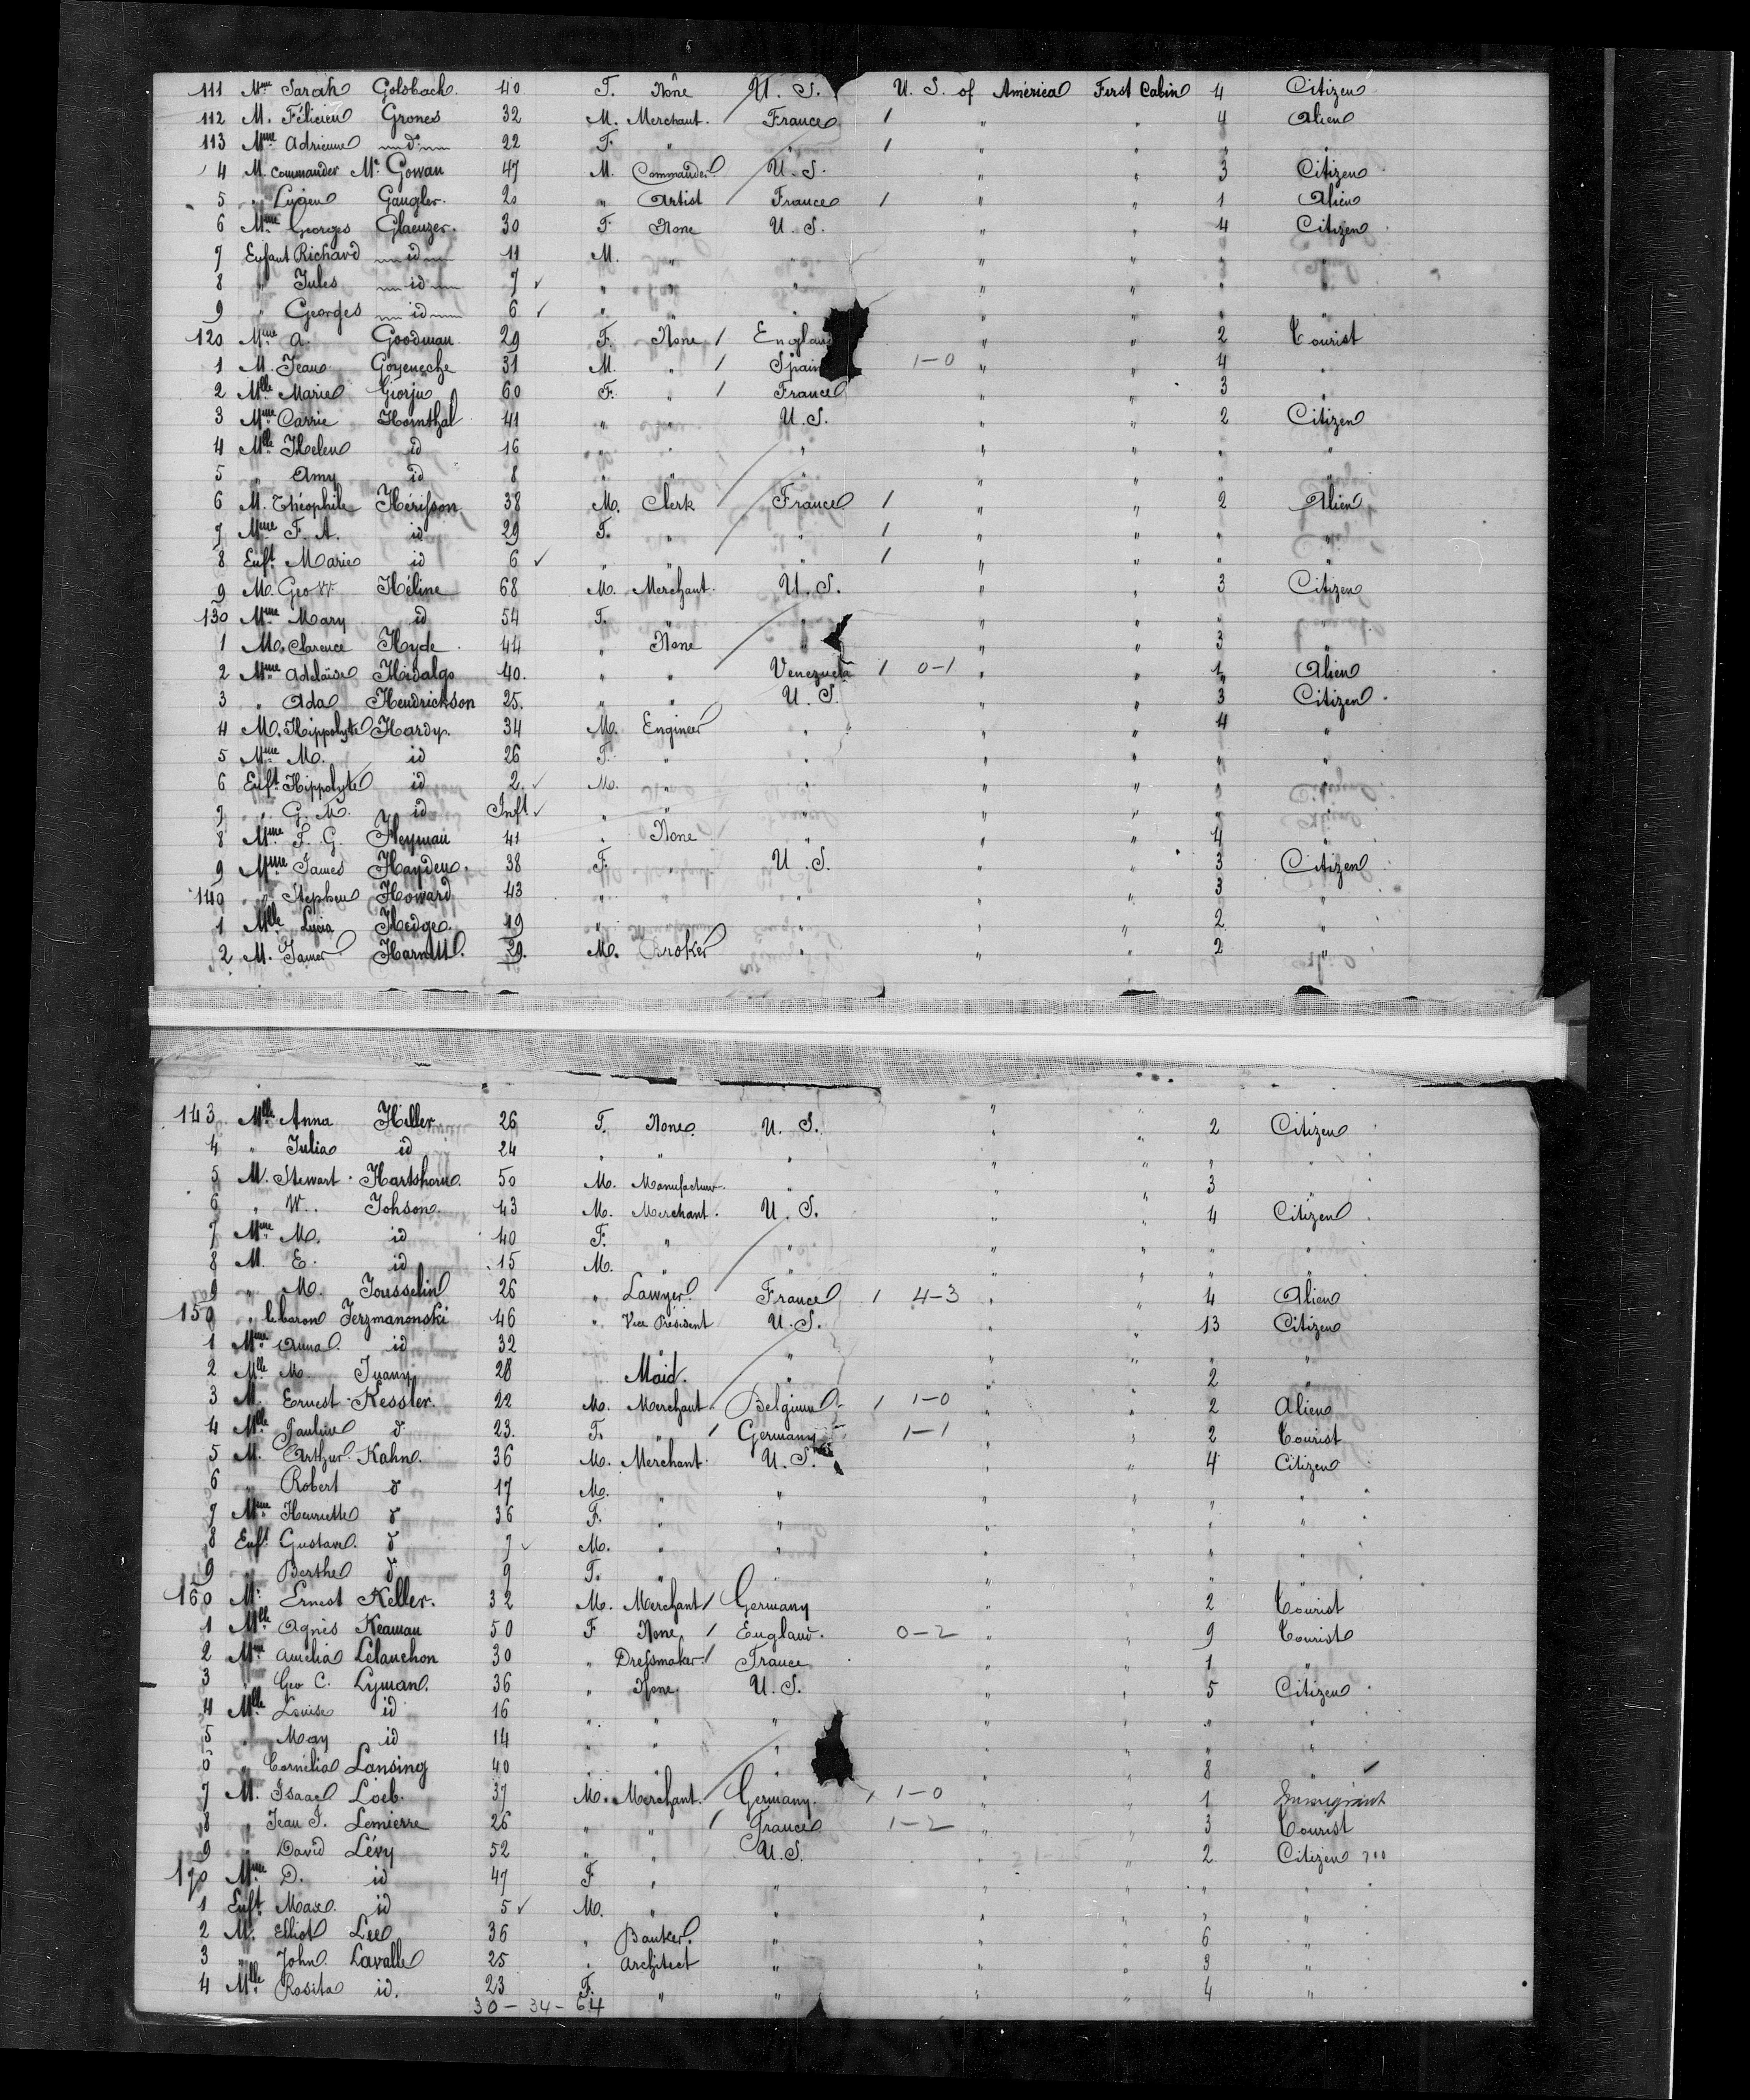 111 Mme Sarah Golsbach. 40 F. None U. S. U. S. of América First Cabin 4 Citizen
112 M. Félicien Grones 32 M. Merchant. France / " " 4 Alien
113 Mme Adrienne d° 22 F. " " / " " " "
4 M. Commander Mc Gowan 47 M. Commander U. S. " " 3 Citizen
5 " Lucien Gaugler. 20 " Artist France / " " 1 Alien
6 Mme Georges Glaenzer. 30 F. None U. S. " " 4 Citizen
7 Enfant Richard id 11 M. " " " " " "
8 " Jules id 7 ✓ " " " " " " "
9 " Georges id 6 ✓ " " " " " " "
120 Mme A. Goodman 29 F. None / England " " 2 Tourist
1 M. Jean Goyeneche 31 M. " / Spain 1-0 " " 4 "
2 Mlle Marie 60 F. " / France " " 3 "
3 Mme Carrie Hornthal 41 " " U. S. " " 2 Citizen
4 Mlle Helen id 16 " " " " " " "
5 " Amy id 8 " " " " " " "
6 M. Théophile Hérisson 38 M. Clerk France / " " 2 Alien
7 Mme F. A. id 29 F. " " / " " " "
8 Enft Marie id 6 ✓ " " " / " " " "
9 M. Geo W. Héline 68 M. Merchant. U. S. " " 3 Citizen
130 Mme Mary id 54 F. " " " " " "
1 M. Clarence Hyde 44 " None " " " 3 "
2 Mme Adelaïse Hidalgo 40. " " Venezuela / 0-1 " " 1 Alien
3 " Ada Hendrickson 25. " " U. S. " " 3 Citizen
4 M. Hippolyte Hardy. 34 M. Engineer " " " 4 "
5 Mme M. id 26 F. " " " " " "
6 Enft Hippolyte id 2 ✓ M. " " " " " "
7 " G. M. id Inft ✓ " " " " " " "
8 Mme F. G. Heyman 41 " None " " " 4 "
9 Mme James Hayden. 38 F. " U. S. " " 3 Citizen
140 " Stephen Howard 43 " " " " " 3 "
1 Mlle Lucia Hedge. 19 " " " " " 2 "
2 M. James 29. M. Broker " " " 2 "
143 Mlle Anna Hiller. 26 F. None. U. S. " " 2 Citizen
4 " Julia id 24 " " " " " " "
5 M. Stewart Hartshorn. 50 M. Manufacturer " " " 3 "
6 " W. Johson. 43 M. Merchant. U. S. " " 4 Citizen
7 Mme M. id 40 F. " " " " " "
8 M. E. id 15 M. " " " " " "
9 " M. Jousselin 26 " Lawyer. France / 4-3 " " 4 Alien
150 " le baron Jerzmanonski 46 " Vice Président U. S. " " 13 Citizen
1 Mme Anna. id 32 " " " " " "
2 Mlle M. Juany 28 Maid. " " " 2 "
3 M. Ernest Kessler. 22 M. Merchant Belgium / 1-0 " " 2 Alien
4 Mlle Pauline d° 23. F. " / Germany 1-1 " " 2 Tourist
5 M. Arthur Kahn. 36 M. Merchant. U. S. " " 4 Citizen
6 " Robert d° 17 M. " " " " " "
7 Mme Henriette d° 36 F. " " " " " "
8 Enft Gustave. d° 7 ✓ M. " " " " " "
9 " Berthe d° 9 F. " " " " " "
160 M. Ernest Keller. 32 M. Merchant / Germany " " 2 Tourist
1 Mlle Agnis Keaman 50 F None / England. 0-2 " " 9 Tourist
2 Mme Amelia Lelanchon 30 " Dressmaker / France " " 1 "
3 " Geo C. Lyman. 36 " None. U. S. " " 5 Citizen
4 Mlle Louise id 16 " " " " " " "
5 " May id 14 " " " " " " "
6 " Cornélia Lansing 40 " " " " " 8 "
7 M. Isaac Loeb. 37 M. Merchant. Germany. / 1-0 " " 1 Immigrant
8 " Jean J. Lemierre 26 " " / France 1-2 " " 3 Tourist
9 " David Lévy 52 " " U. S. " " 2 Citizen
170 Mme D. id 47 F " " " " " "
1 Enft Max. id 5 ✓ M. " " " " " "
2 M. Elliot Lee 36 " Banker. " " " 6 "
3 " John. Lavalle 25 " Architect " " " 3 "
4 Mlle Rosita id. 23 F. " " " " 4 "
30 - 34 - 64